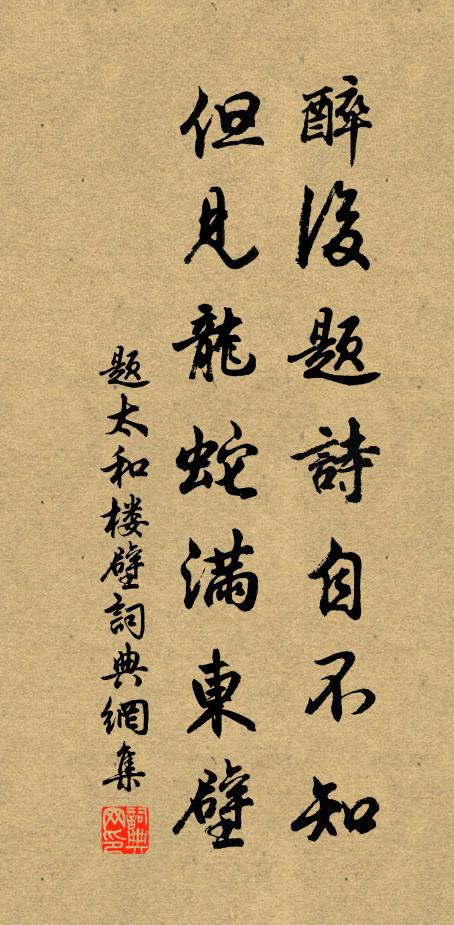 醉後题詩自不知
但見龍蛇滿東壁
题太和楼壁詞典網集
詞典
网印